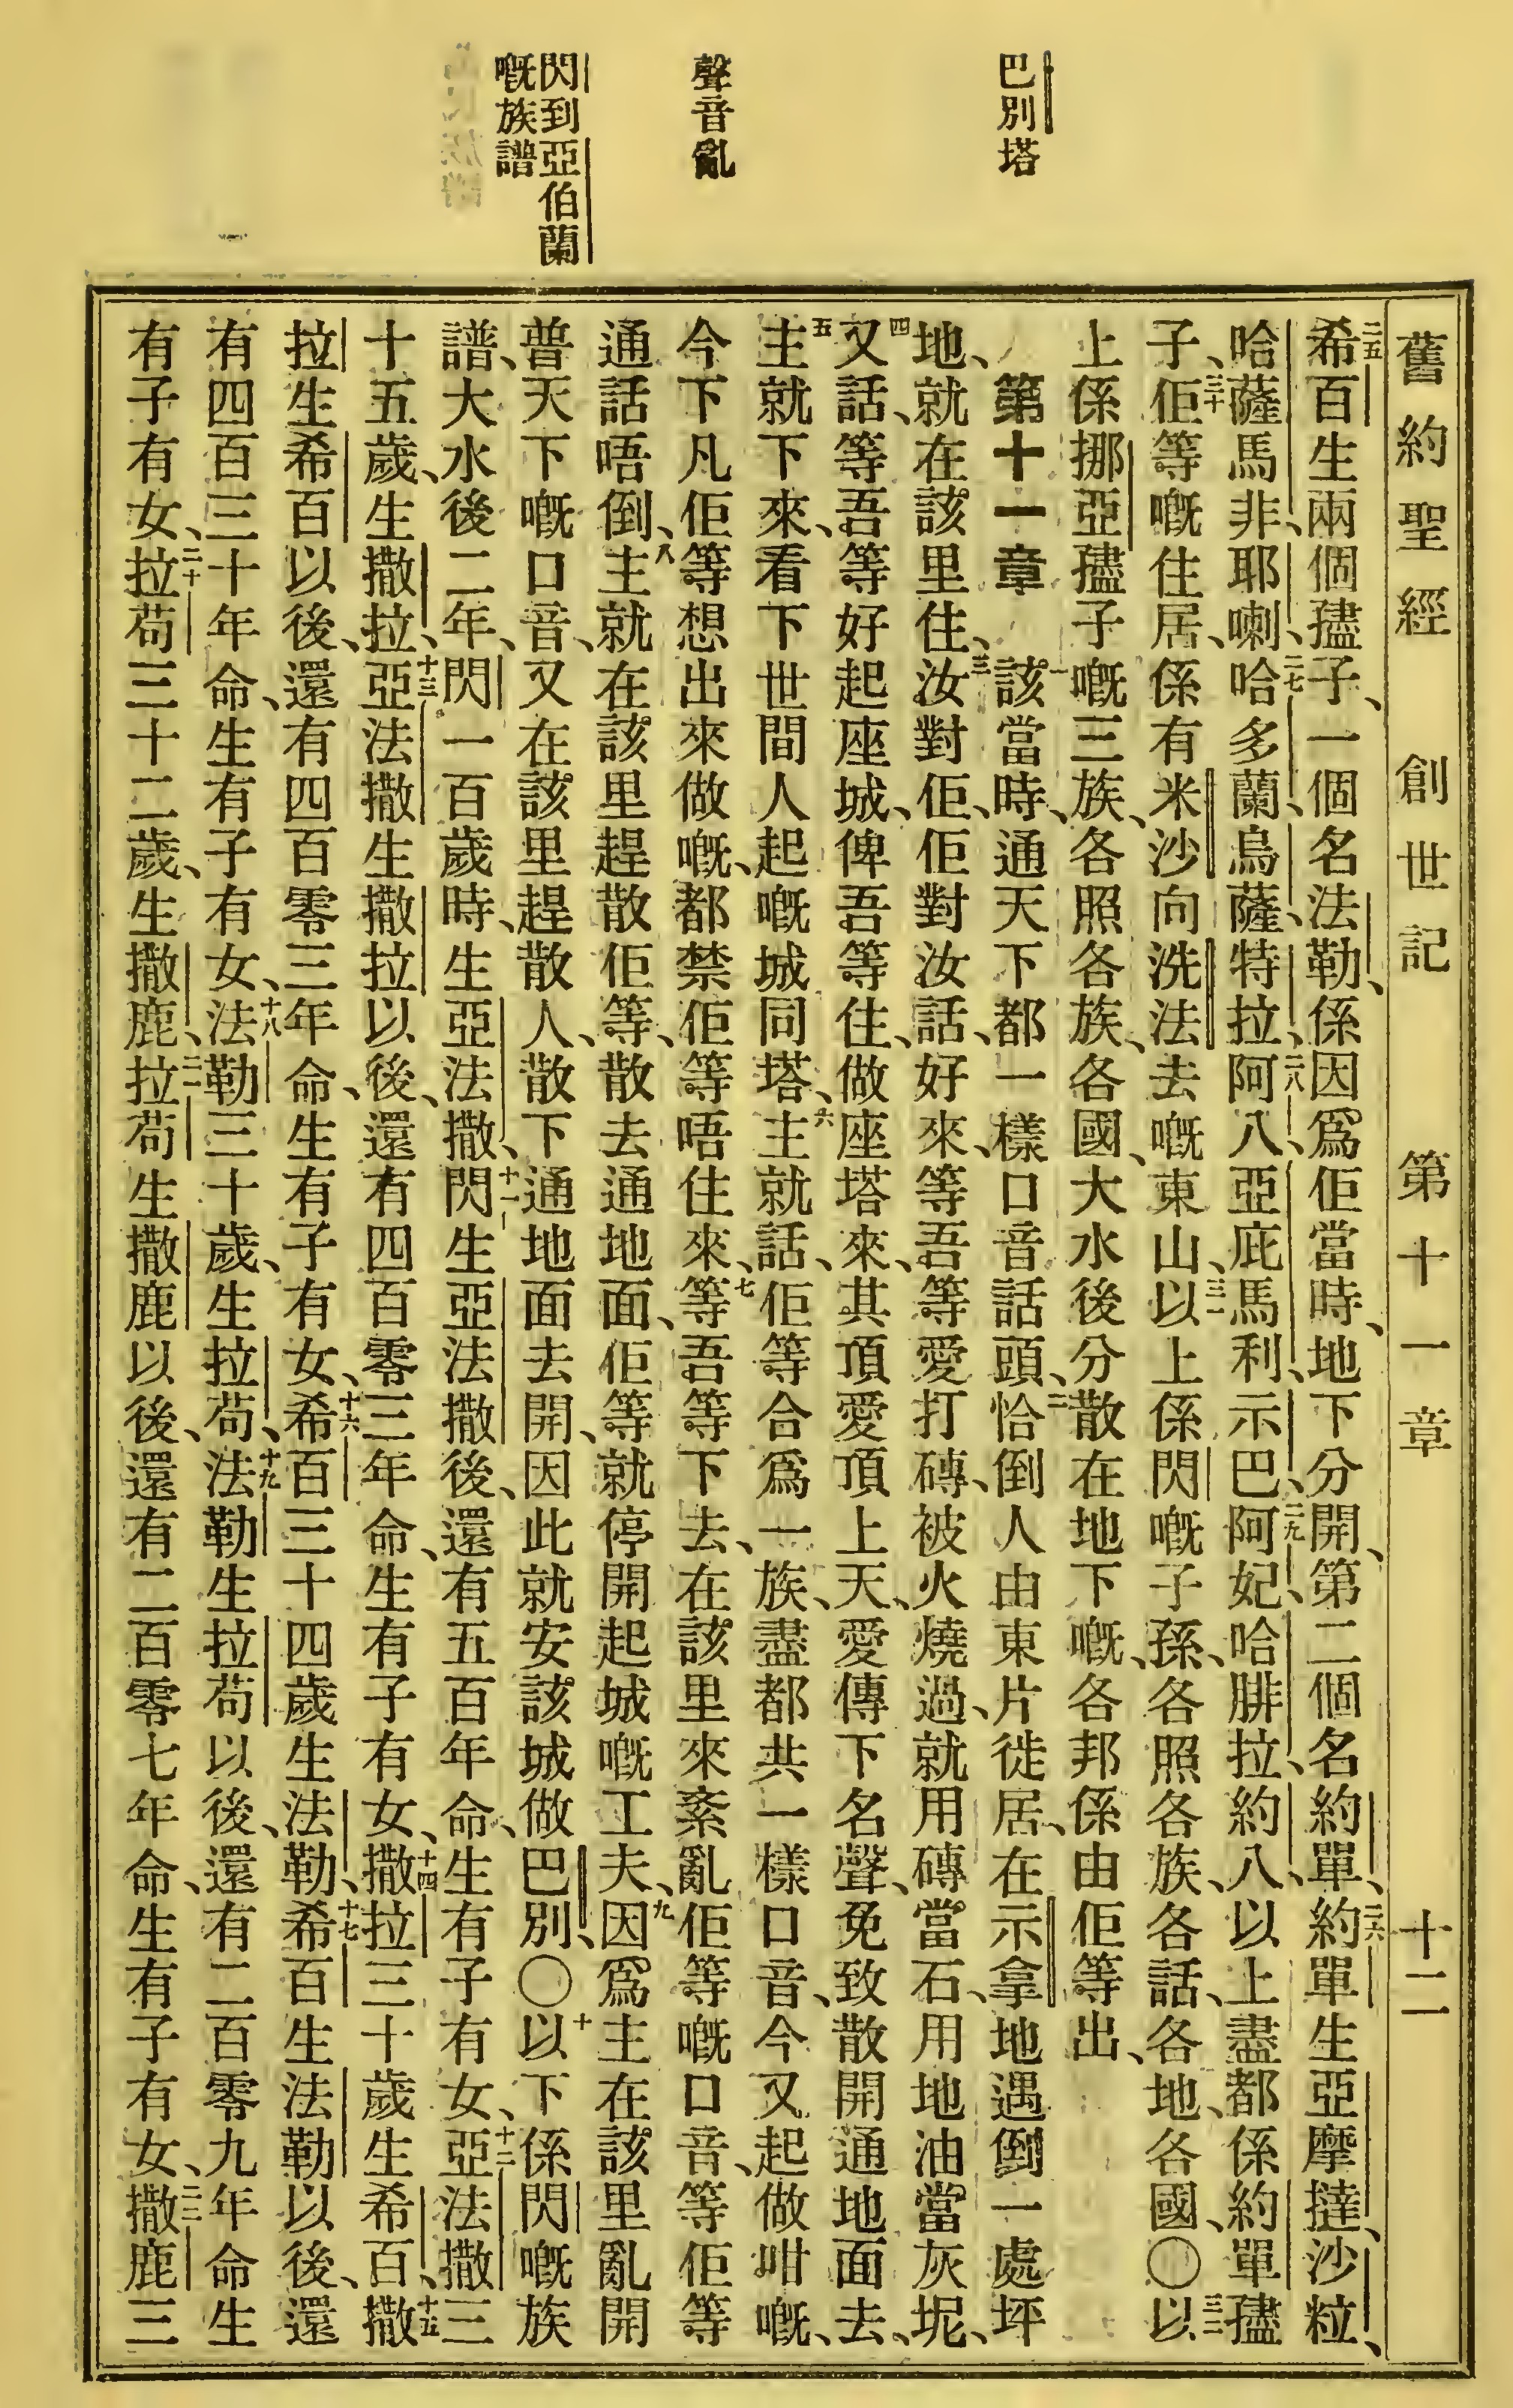 巴別塔
聲音亂
閃到亞伯蘭
嘅族譜
舊約聖經 創世記 第十一章 十二
二五希百生兩個孻子、一個名法勒、係因爲佢當時、地下分開、第二個名約單、二六約單生亞摩撻、沙粒、
哈薩馬非、耶喇、二七哈多蘭、烏薩、特拉、二八阿八、亞庇馬利、示巴、二九阿妃、哈腓拉、約八、以上盡都係約單孻
子、三十佢等嘅住居、係有米沙向洗法去嘅東山、三一以上係閃嘅子孫、各照各族、各話、各地、各國、〇三二以
上係挪亞孻子嘅三族、各照各族、各國、大水後分散在地下嘅、各邦係由佢等出、
第十一章 一該當時、通天下都一樣口音話頭、二恰倒人由東片徙居、在示拿地遇倒一處坪
地、就在該里住、三汝對佢、佢對汝話、好來、等吾等愛打磚、被火燒過、就用磚當石、用地油當灰坭、
四又話、等吾等好起座城、俾吾等住、做座塔來、其頂愛頂上天、愛傳下名聲、免致散開通地面去、
五主就下來、看下世間人起嘅城同塔、六主就話、佢等合爲一族、盡都共一樣口音、今又起做咁嘅、
今下凡佢等想出來做嘅、都禁佢等唔住來、七等吾等下去、在該里來紊亂佢等嘅口音、等佢等
通話唔倒、八主就在該里趕散佢等、散去通地面、佢等就停開起城嘅工夫、九因爲主在該里亂開
普天下嘅口音、又在該里趕散人、散下通地面去開、因此就安該城做巴別、〇十以下係閃嘅族
譜、大水後二年、閃一百歲時、生亞法撒、十一閃生亞法撒後、還有五百年命、生有子有女、十二亞法撒三
十五歲、生撒拉、十三亞法撒生撒拉以後、還有四百零三年命、生有子有女、十四撒拉三十歲生希百、十五撒
拉生希百以後、還有四百零三年命、生有子有女、十六希百三十四歲生法勒、十七希百生法勒以後、還
有四百三十年命、生有子有女、十八法勒三十歲、生拉苟、十九法勒生拉苟以後、還有二百零九年命生
有子有女、二十拉苟三十二歲、生撒鹿、二一拉苟生撒鹿以後、還有二百零七年命、生有子有女、二二撒鹿三